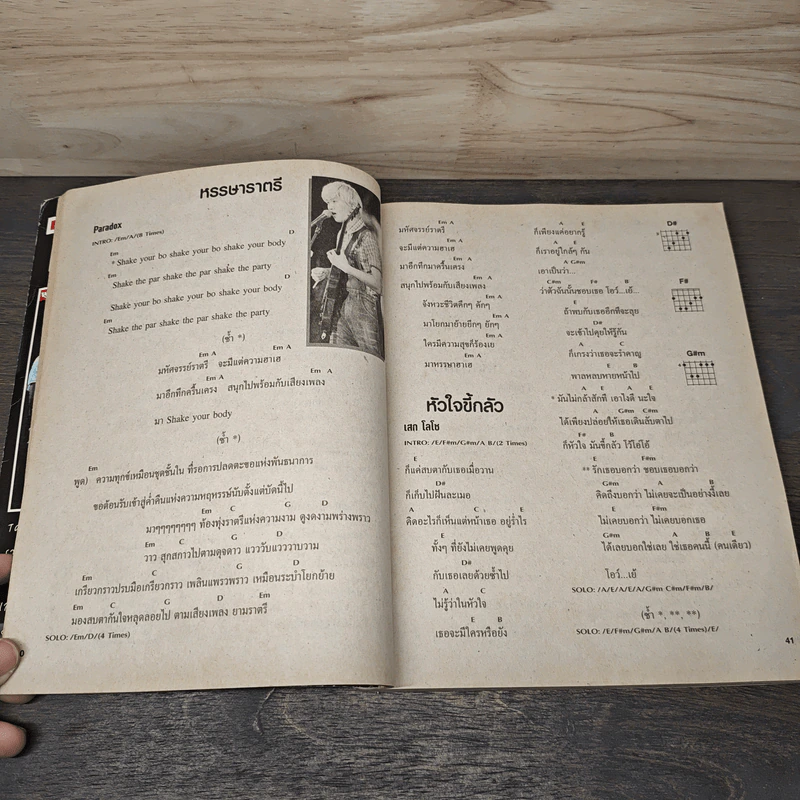 หรรษาราตรี
Paradox
INTRO: /Em/A/(8 Times)
Em D
* Shake your bo shake your bo shake your body
Em
Shake the par shake the par shake the party
D
Shake your bo shake your bo shake your body
Em
Shake the par shake the par shake the party
(ซ้ำ *)
Em A Em A
มหัศจรรย์ราตรี จะมีแต่ความฮาเฮ
Em A Em A
มาอึกทึกครื้นเครง สนุกไปพร้อมกับเสียงเพลง
มา Shake your body
(ซ้ำ *)
Em
พูด) ความทุกข์เหมือนชุดชั้นใน ที่รอการปลดตะขอแห่งพันธนาการ
ขอต้อนรับเข้าสู่ค่ำคืนแห่งความหฤหรรษ์นับตั้งแต่บัดนี้ไป
Em C G D
มาๆๆๆๆๆๆๆ ท้องทุ่งราตรีแห่งความงาม ดูงดงามพร่างพราว
Em C G D
วาว สุกสกาวไปตามดุจดาว แวววับแวววาบวาม
Em C G D
เกรียวกราวปรบมือเกรียวกราว เพลินแพรวพราว เหมือนระบำโยกย้าย
Em C G D
มองสบตากันใจหลุดลอยไป ตามเสียงเพลง ยามราตรี
SOLO: /Em/D/(4 Times)
0
Em A
มหัศจรรย์ราตรี
Em A
จะมีแต่ความฮาเฮ
Em A
มาอึกทึกมาครื้นเครง
Em A
สนุกไปพร้อมกับเสียงเพลง
Em A
จังหวะชีวิตดึกๆ ดักๆ
Em A
มาโยกมาย้ายยึกๆ ยักๆ
Em A
ใครมีความสุขก็ร้องเย
Em A
มาหรรษาฮาเฮ
หัวใจขี้กลัว
เสก โลโซ
INTRO: /E/F#m/G#m/A B/(2 Times)
E
ก็แค่สบตากับเธอเมื่อวาน
D#
ก็เก็บไปฝันละเมอ
A C E
คิดอะไรก็เห็นแต่หน้าเธอ อยู่ร่ำไร
E
ทั้งๆ ที่ยังไม่เคยพูดคุย
D#
กับเธอเลยด้วยซ้ำไป
A C
ไม่รู้ว่าในหัวใจ
E B
เธอจะมีใครหรือยัง
A E
ก็เพียงแค่อยากรู้
A E
ก็เราอยู่ใกล้ๆ กัน
A G#m
เอาเป็นว่า...
C#m F# B
ว่าตัวฉันนั้นชอบเธอ โอว์...เย้...
E
ถ้าพบกับเธออีกทีจะลุย
D#
จะเข้าไปคุยให้รู้กัน
A C
ก็เกรงว่าเธอจะรำคาญ
E B
พาลหลบหายหน้าไป
A E A E
* มันไม่กล้าสักที เอาไงดี นะใจ
A G#m C#m
ได้เพียงปล่อยให้เธอเดินลับตาไป
F# B
ก็หัวใจ มันขี้กลัว โว้โฮ่โอ้
E F#m
** รักเธอบอกว่า ชอบเธอบอกว่า
G#m A B
คิดถึงบอกว่า ไม่เคยจะเป็นอย่างงี้เลย
E F#m
ไม่เคยบอกว่า ไม่เคยบอกเธอ
G#m A B E
ได้เลยบอกใช่เลย ใช่เธอคนนี้ (คนเดียว)
โอว์...เย้
SOLO: /A/E/A/E/A/G#m C#m/F#m/B/
(ซ้ำ *, **, **)
SOLO: /E/F#m/G#m/A B/(4 Times)/E/
D#
F#
G#m
41